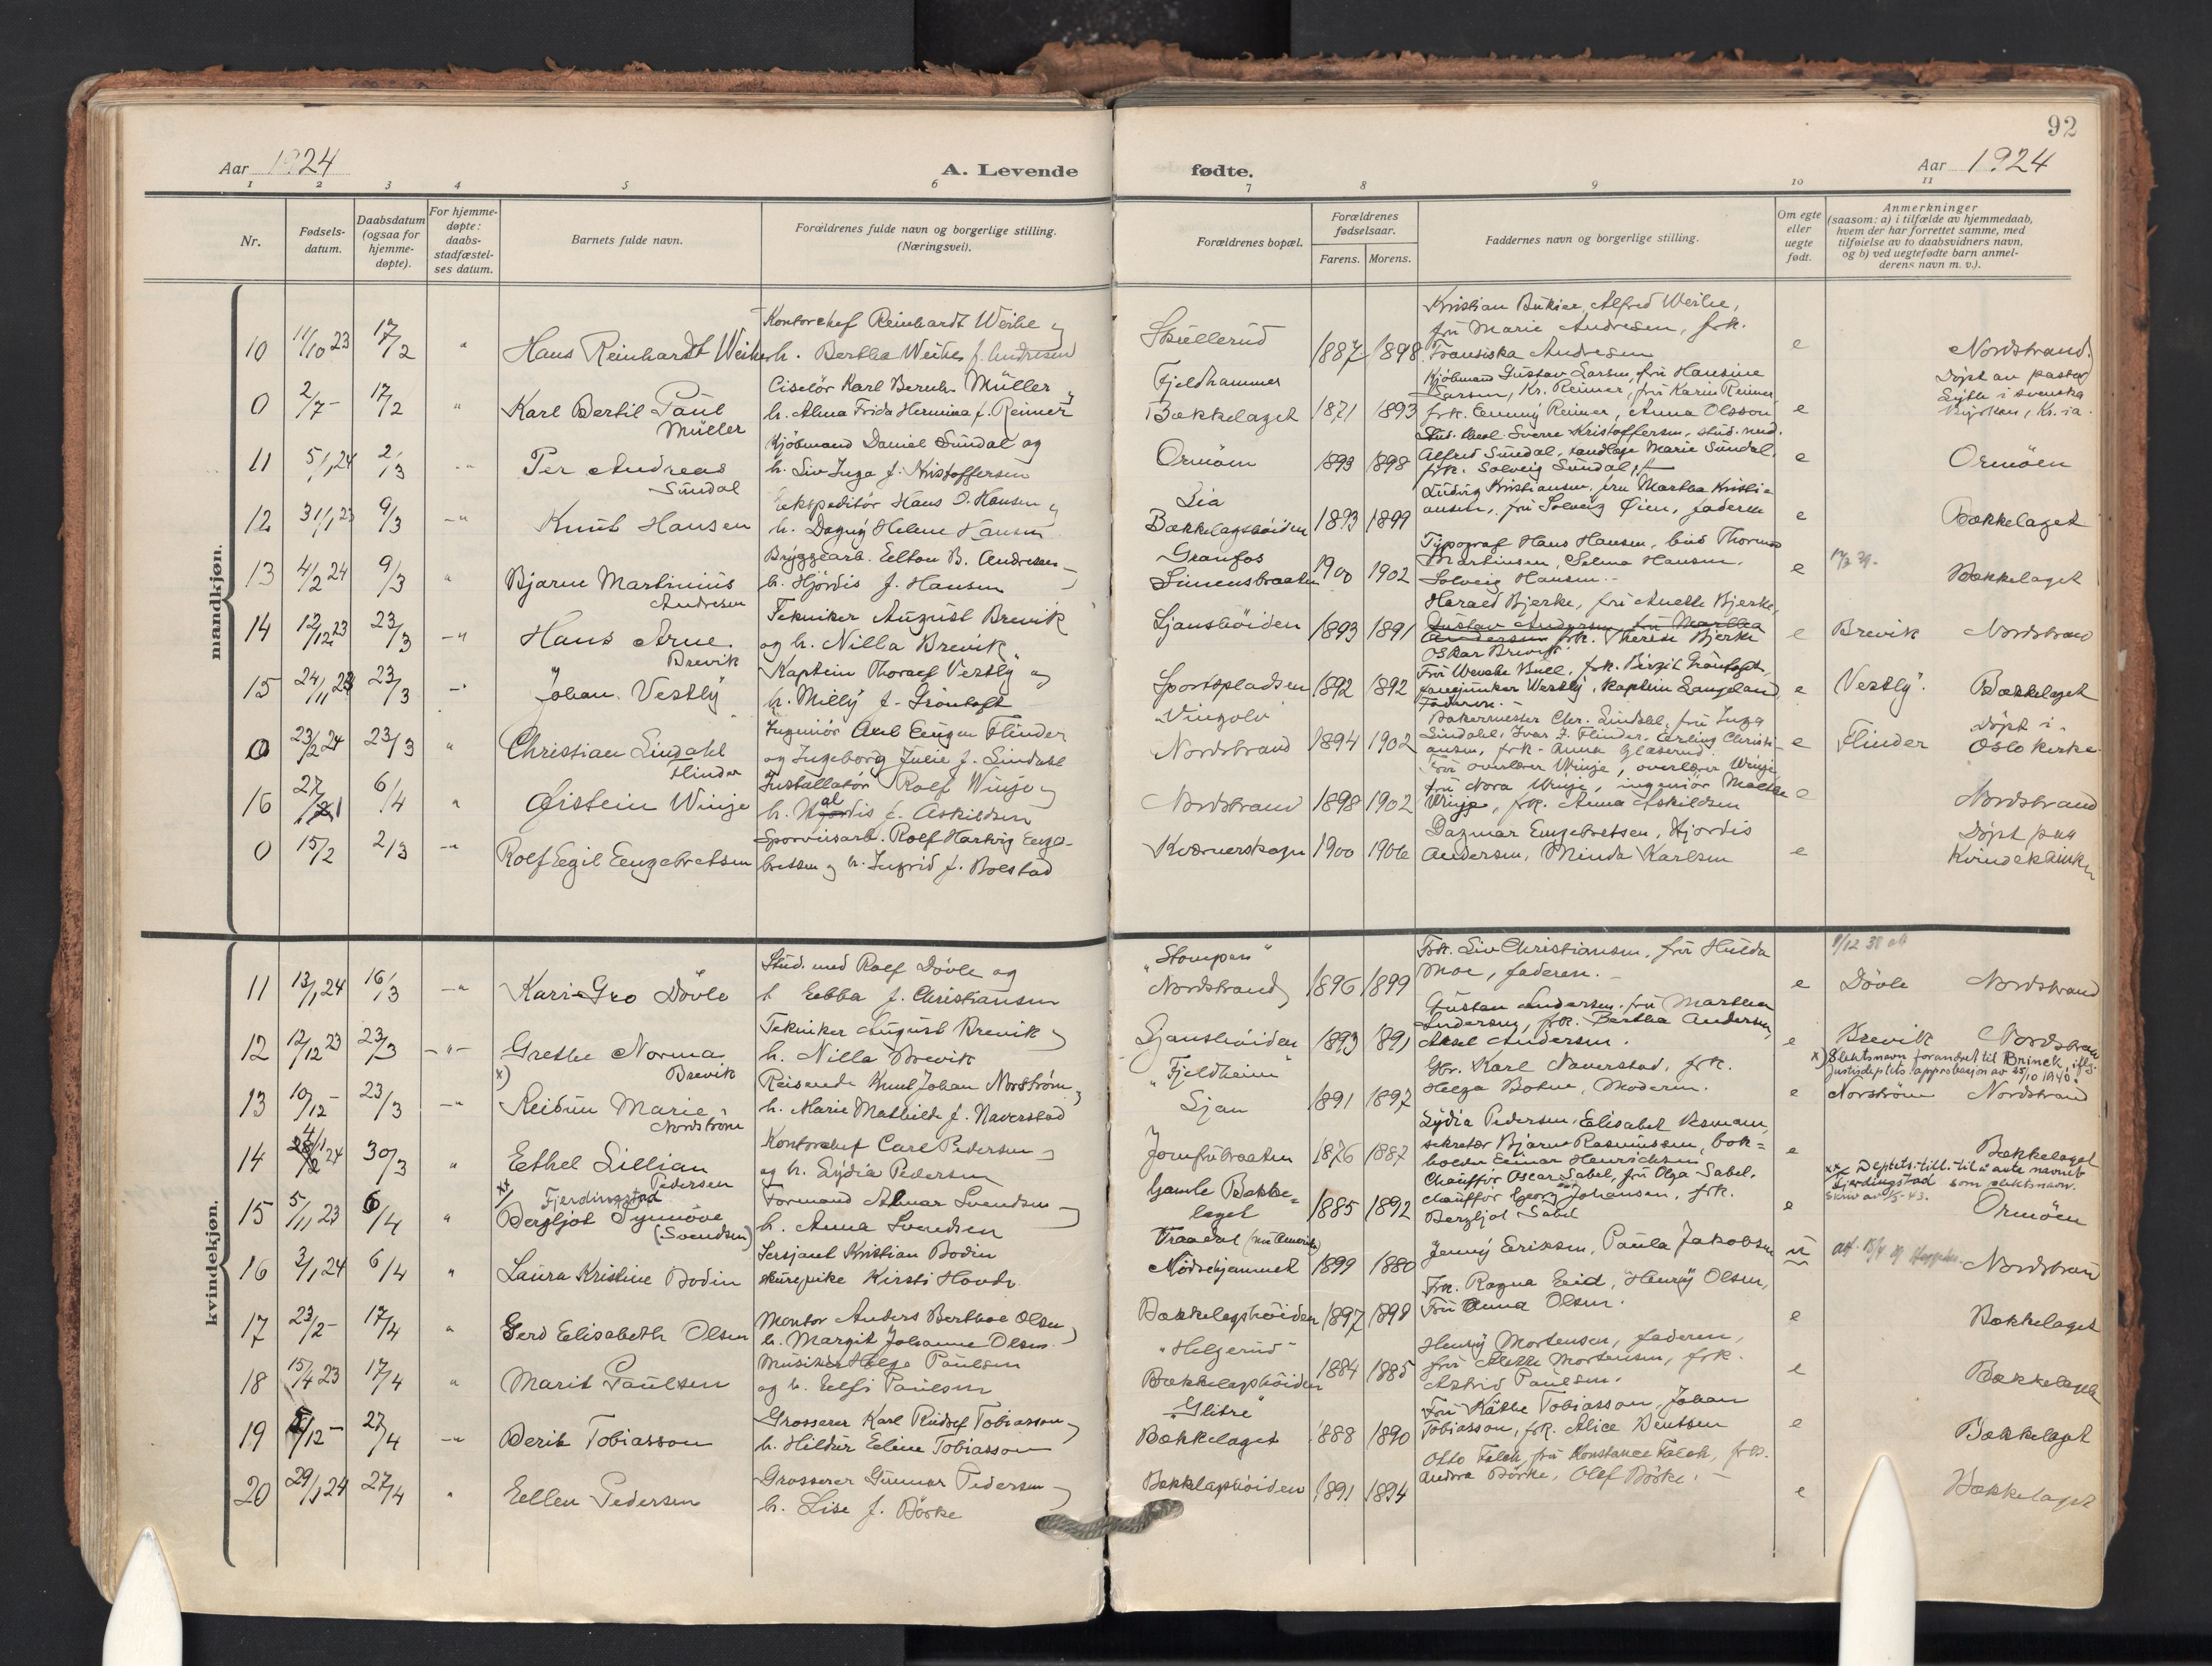 92
Aar 1924
A. Levende
fødte.
Aar 1924
1 2 3 4 5 6 7 8 9 10 11
Nr.
Fødsels-
datum.
Daabsdatum
(ogsaa for
hjemme-
døpte).
For hjemme-
døpte:
daabs-
stadfæstel-
ses datum.
Barnets fulde navn.
Forældrenes fulde navn og borgerlige stilling.
(Næringsvei).
Forældrenes bopæl.
Forældrenes
fødselsaar.
Farens. Morens.
Faddernes navn og borgerlige stilling.
Om egte
eller
uegte
født.
Anmerkninger
(saasom: a) i tilfælde av hjemmedaab,
hvem der har forrettet samme, med
tilføielse av to daabsvidners navn,
og b) ved uegtefødte barn anmel-
derens navn m. v.).
mandkjøn.
10 11/10 23 17/2 " Hans Reinhardt Weihe
Kontorchef Reinhardt Weihe og
h. Bertha Weihe f. Andresen
Skullerud 1887 1898
Alfred Weihe,
fru Marie Andresen, frk.
Fransiska Andresen
e Nordstrand.
0 2/7 - 17/2 " Karl Bertil Paul
Müller
Ciselör Karl Bernh. Müller og
h. Alma Frida Hermina f. Reimer
Fjeldhammer
Bækkelaget 1871 1893
Kjöbmand Gustav Larsen, fru Hansine
Larsen, Kr. Reimer, fru Karin Reimer,
frk. Emmy Reimer, Anna Olsson
e Döpt av pastor
i svenska
kyrkan, Kr.ia.
11 5/1 24 2/3 -"- Per Andreas
Sundal
Kjöbmand Daniel Sundal og
h. Liv Inga f. Kristoffersen
Ormöen 1893 1898
Stud. theol. Sverre Kristoffersen, stud. med.
Alfred Sundal, tandlæge Marie Sundal,
frk. Solveig Sundal
e Ormöen
12 31/1 23 9/3 -"- Knut Hansen
Ekspeditör Hans O. Hansen og
h. Dagny Helene Hansen
Lia
Bækkelagshöiden 1893 1899
Ludvig Kristiansen, fru Martha Kristi-
ansen, fru Solveig Öien, faderen
e Bækkelaget
13 4/2 24 9/3 " Bjarne Martinius
Andresen
Bryggearb. Elton B. Andresen
h. Hjördis f. Hansen
Granfos
Simensbraaten 1900 1902
Typograf Hans Hansen, bud Thormod
Martinsen, Selma Hansen,
Solveig Hansen.-
e Bækkelaget
14 12/12 23 23/3 -"- Hans Arne
Brevik
Tekniker August Brevik
og h. Nilla Brevik
Ljanshöiden 1893 1891
Harald Bjerke, fru Anette Bjerke,
Gustav Andersen fru Martha
Andersen frk. Therese Bjerke
Oskar Brevik
e Brevik Nordstrand
15 24/11 23 23/3 -"- Johan Vestly
Kaptein Thoralf Vestly og
h. Milly f. Gröntoft
Sportspladsen 1892 1892
Fru Wenche Bull, frk. Birgit Gröntoft,
fanejunker Westly, Kaptein Langeland,
Faderen.-
e Vestly. Bækkelaget
0 23/2 24 23/3 " Christian Lindahl
Flinder
Ingeniör Axel Eugen Flinder
og Ingeborg Julie f. Lindahl
"Vingolv"
Nordstrand 1894 1902
Bakermester Chr. Lindahl, fru Inga
Lindahl, Ivar F. Flinder, Erling Christi-
ansen, frk. Anna Glæserud
e Flinder Döpt i
Oslo kirke.
16 27/1 6/4 " Øistein Winje
Installatör Rolf Winje og
h. f. Askildsen
Nordstrand 1898 1902
Fru overlærer Winje, overlærer Winje
fru Nora Winje, ingeniör
Winje, frk. Anna Askildsen
e Nordstrand
0 15/2 2/3 -"- Rolf Egil Engebretsen
Sporveisarb. Rolf Hartvig Enge-
bretsen og h. Ingrid f. Bolstad
Kværnerskogen 1900 1906
Dagmar Engebretsen, Hjördis
Andersen, Minda Karlsen
e Döpt paa
Kvindeklinikken
kvindekjøn.
11 13/1 24 16/3 -"- Kari-Gro Dövle
Stud. med Rolf Dövle og
h Ebba f. Christiansen
"Stompen"
Nordstrand 1896 1899
Frk. Liv Christiansen, fru Hulda
Moe, faderen.-
e Dövle Nordstrand
12 12/12 23 23/3 -"- Grethe Norma
Brevik
Tekniker August Brevik og
h. Nilla Brevik
Ljanshöiden 1893 1891
Gustav Andersen, fru Martha
Andersen, frk. Bertha Andersen,
Aksel Andersen.
e Brevik Nordstrand
13 10/12 - 23/3 -"- x) Reidun Marie
Nordström
Reisende Knut Johan Norström og
h. Marie Mathilde f. Naverstad
"Fjeldheim"
Ljan 1891 1897
Gbr. Karl Naverstad, frk.
Helga Bohne, Moderen.
e Norström Nordstrand
x) Slektsnavn forandret til Brinck, iflg.
justisdepts. approbasjon av 25/10 1940.
14 24 30/3 " Ethel Lillian
Pedersen
Kontorchef Carl Pedersen
og h. Lydia Pedersen
Jomfrubraaten 1876 1887
Lydia Pedersen, Elisabet Asmann,
sekretær Bjarne Rasmussen, bok-
holder Einar Henrichsen
e Bækkelaget
15 5/11 23 6/4 " xx Fjerdingstad
Bergljot Synnöve
(Svendsen)
Formand Almar Svendsen
h. Anna Svendsen
Gamle Bække-
laget 1885 1892
Chauffør Oscar Sabel, fru Olga Sabel,
chauffør Georg Johansen, frk.
Bergljot Sabel
e Ormöen
xx Deptets. till. til å anta navnet
Fjerdingstad som slektsnavn.
16 3/1 24 6/4 " Laura Kristine Bodin
Sersjant Kristian Bodin
skurepike Kirsti Hovde
Mödrehjemmet 1899 1880
Jenny Eriksen, Paula Jakobsen
u Nordstrand
17 23/2 - 17/4 " Gerd Elisabeth Olsen
Montör Anders Berthoe Olsen
h. Margit Johanne Olsen
Bækkelagshöiden 1897 1898
Frk. Ragna Eid, Henry Olsen,
Fru Anna Olsen.
e Bækkelaget
18 15/4 23 17/4 " Marit Paulsen
Musiker Helge Paulsen
og h. Elfi Paulsen
"Helgerud"
Bækkelagshöiden 1884 1885
Henry Mortensen, faderen,
fru Mortensen, frk.
Astrid Paulsen.
e Bækkelaget
19 5/12 - 27/4 -"- Berit Tobiasson
Grosserer Karl Rudolf Tobiasson
h. Hildur Eline Tobiasson
"Glitre"
Bækkelaget 1888 1890
Fru Käthe Tobiasson, Johan
Tobiasson, frk. Alice Berntsen
e Bækkelaget
20 29/1 24 27/4 " Ellen Pedersen
Grosserer Gunnar Pedersen
h. Lise f. Börke
Bækkelagshöiden 1891 1894
Otto Falch, fru Konstance Falch, frk.
Andrea Börke, Olaf Börke.-
e Bækkelaget